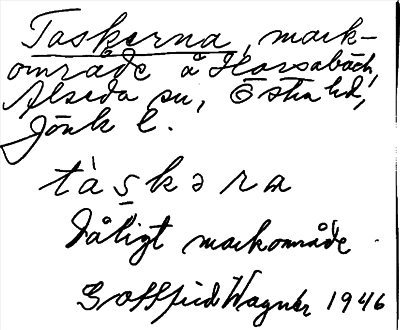 Taskerna, mark-
område å Horsabäck,
Alseda sn, Östra hd,
Jönk l.
tàskəra
dåligt markområde.
Gottfrid Wagnér 1946